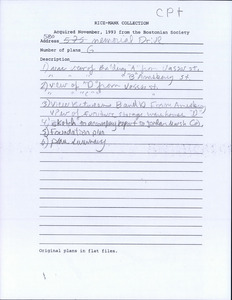 CPT
RICE-MARK COLLECTION
Acquired November, 1993 from the Bostonian Society
580
Address 575 memorial Drive
Number of plans 6
Description
1) rear view of Building "A" from Vassar St.
" " " " "B" Amesbury St.
2) view of "D" from Vassar St.
" " "
3) View between B and D from Amesbury
view of furniture storage warehouse "D"
4) sketch on Jordan Marsh Co.
5) Foundation plan
6) plan
Original plans in flat files.